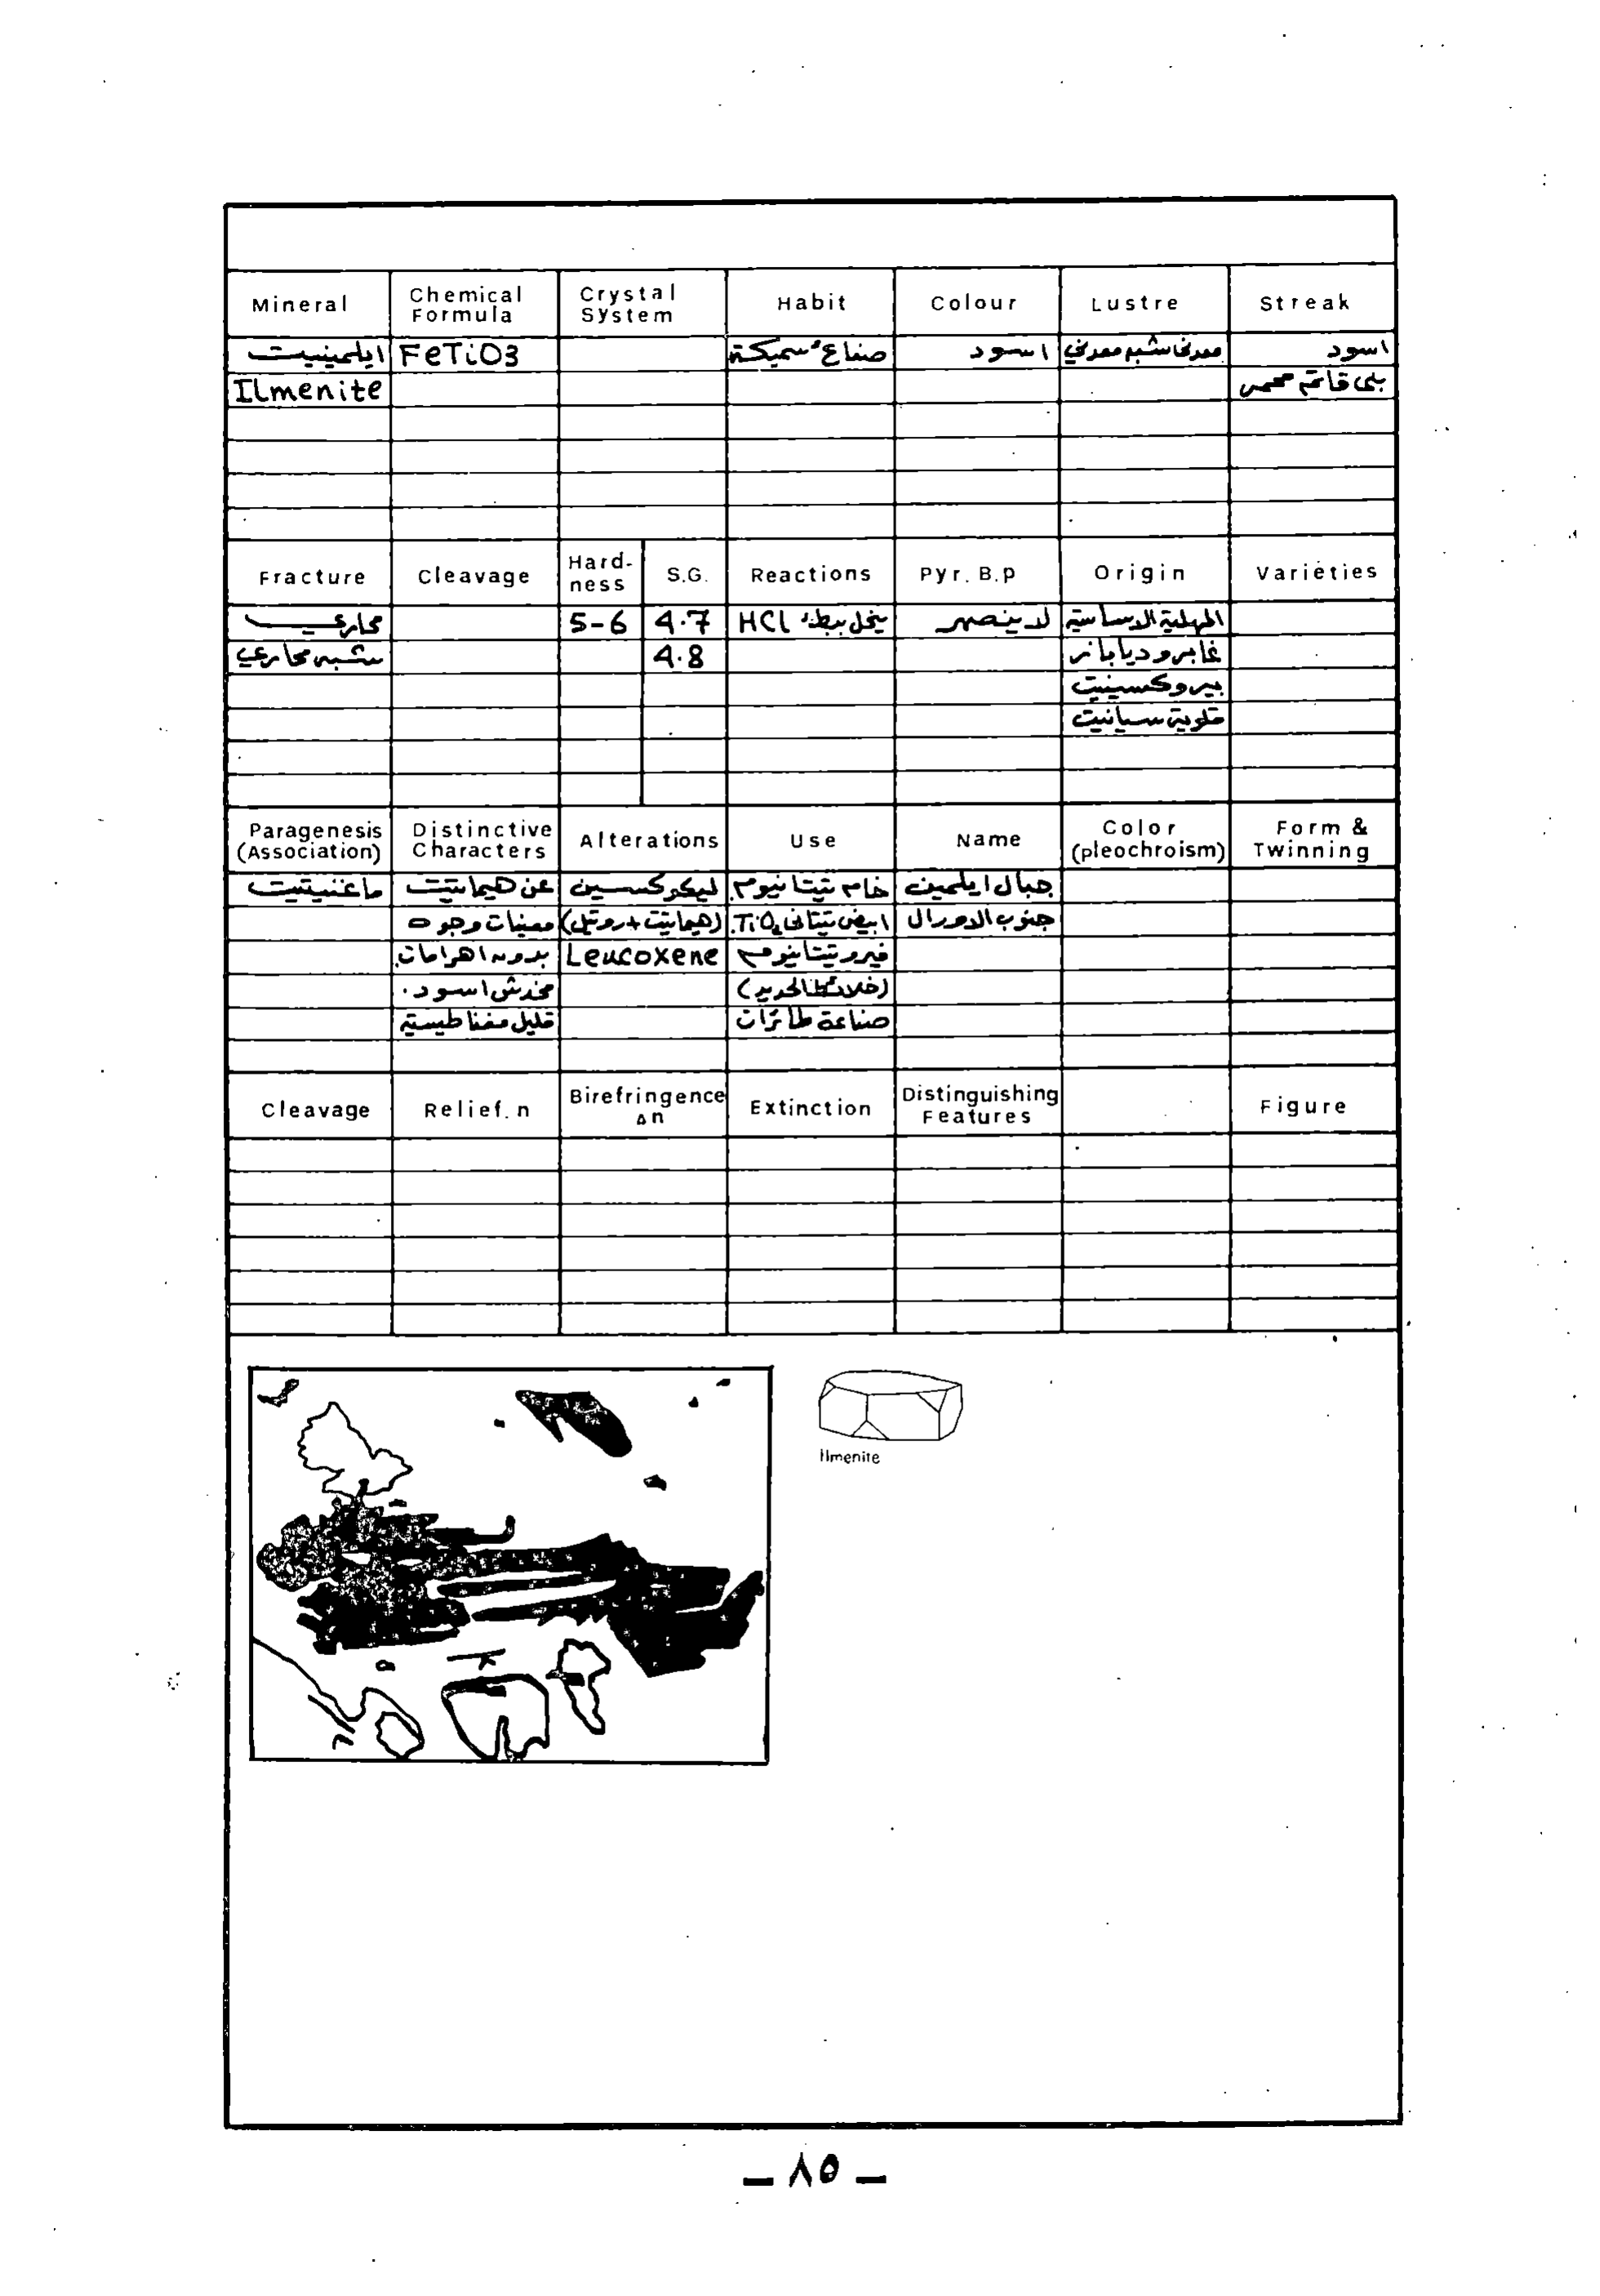 Mineral Chemical Formula Crystal System Habit Colour Lustre Streak
ايلمينيت FeTiO3 صفائح سميكة اسود معدني شبه معدني اسود
Ilmenite بني قاتم محمر
Fracture Cleavage Hard-ness S.G. Reactions Pyr. B.p Origin Varieties
محاري 5-6 4.7 ينحل ببطء HCl لا ينصهر المهلية الاساسية
شبه محاري 4.8 غابرو دياباز
بيروكسينيت
قلوية سيانيت
Paragenesis (Association) Distinctive Characters Alterations Use Name Color (pleochroism) Form & Twinning
ماغنيتيت عن هيماتيت ليكوكسين خام تيتانيوم جبال ايلمين
معينات وجوه (هيماتيت + روتيل) ابيض تيتاني TiO2 جنوب الاورال
بدون اهرامات Leucoxene فيروتيتانيوم
مخدش اسود. (خلائط الحديد)
قليل مغناطيسية صناعة طائرات
Cleavage Relief. n Birefringence Δn Extinction Distinguishing Features Figure
Ilmenite
– ٨٥ –